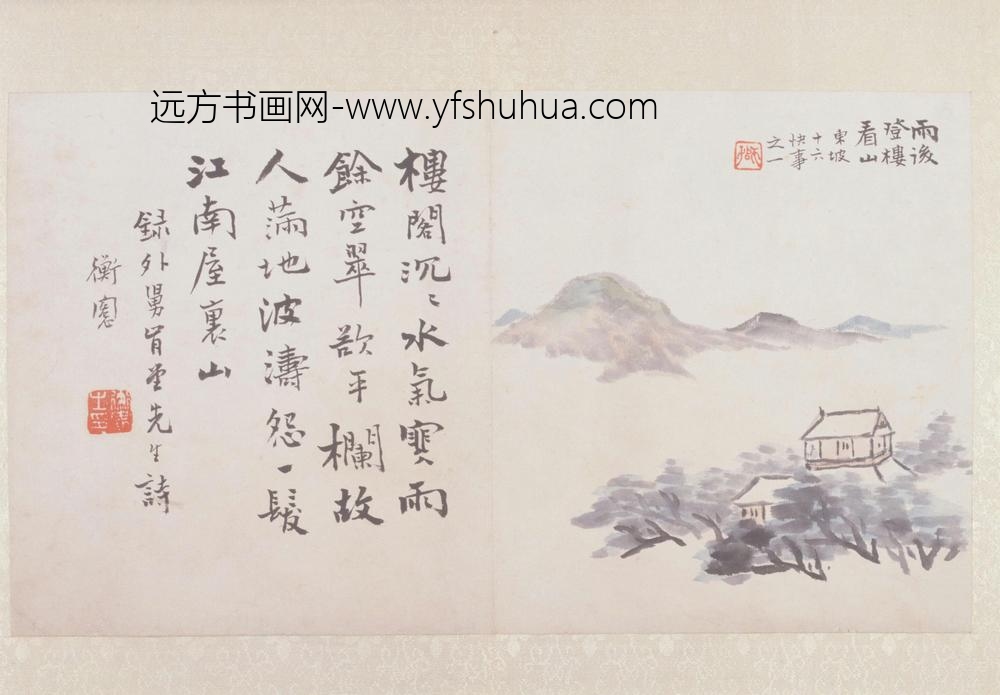 远方书画网-www.yfshuhua.com
雨後
登樓
看山
東坡
十六
快事
之一
樓閣沉〻水氣寒雨
餘空翠欲平欄故
人滿地波濤怨一髮
江南屋裏山
録外舅肎堂先生詩
衡窻